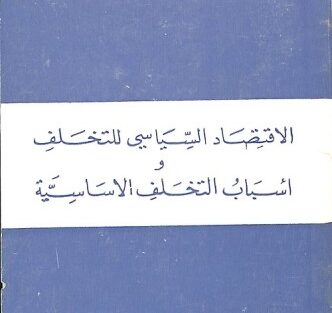 الاقتِصَاد السِّيَاسِي للتخَلفِ
و
أسبَابُ التخَلفِ الاسَاسِيَّة